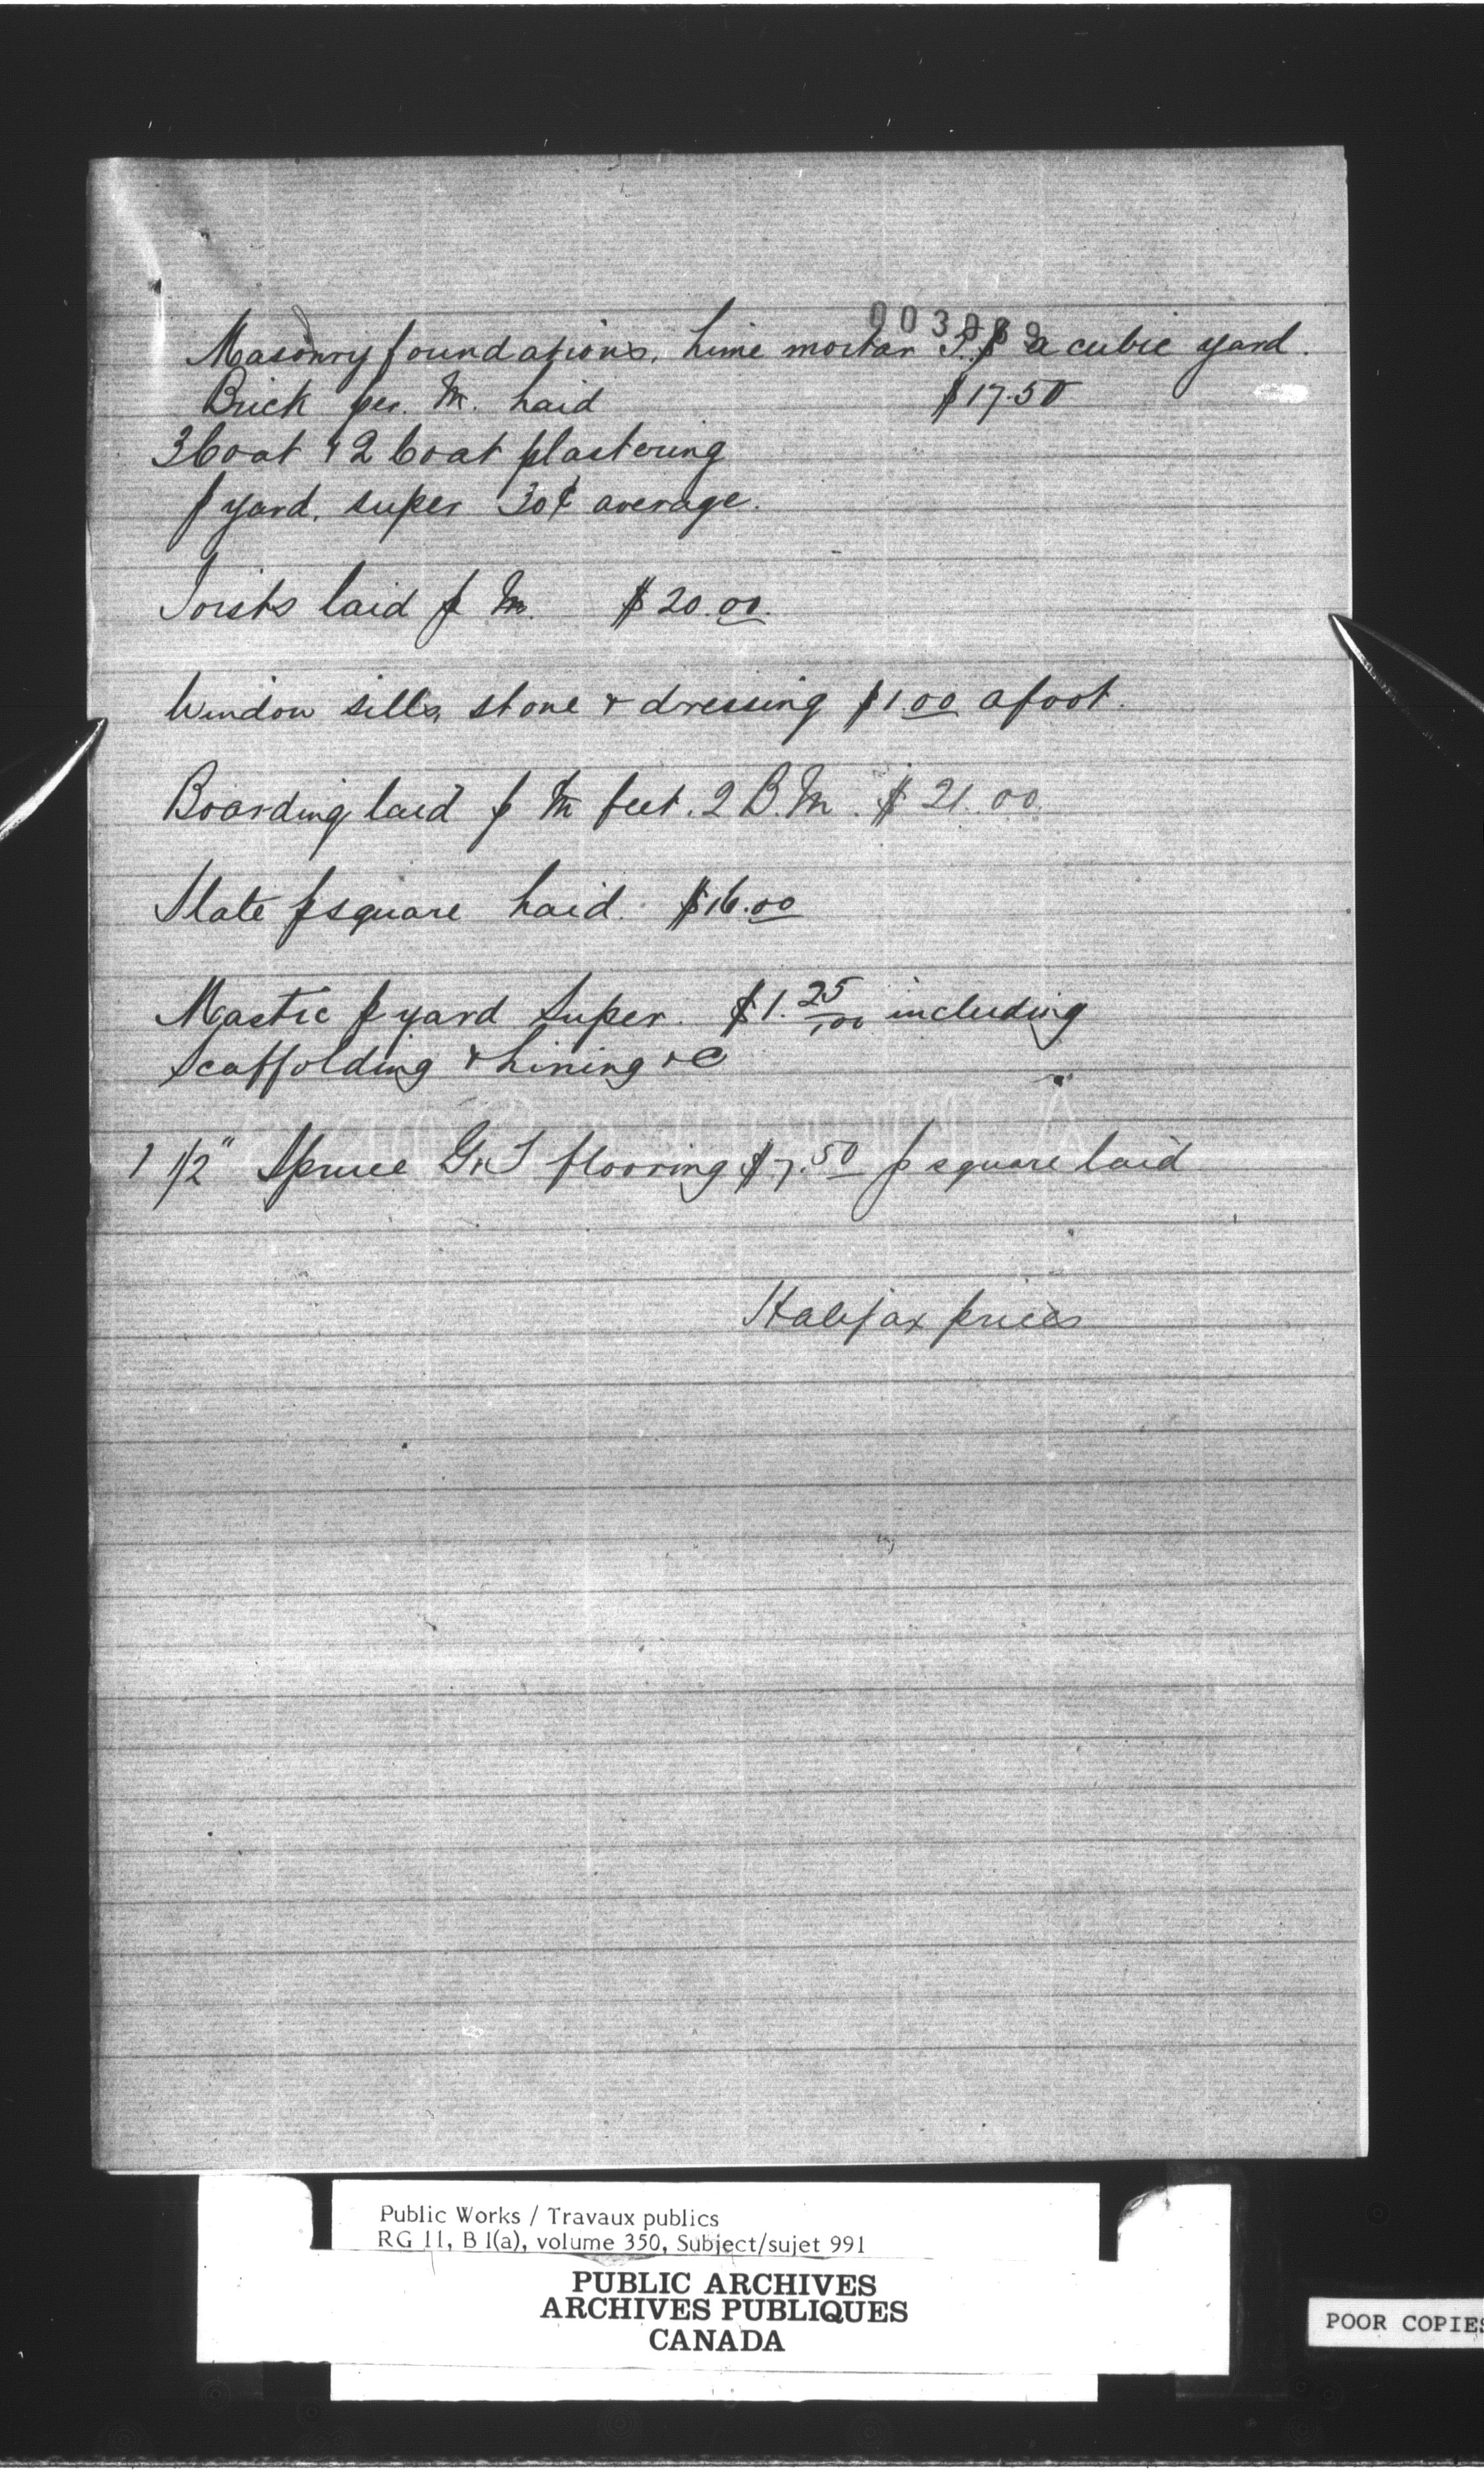 Masonry foundations, Lime mortar 5.$ a cubic yard.
Brick per. M. Laid $17.50
3 Coat & 2 Coat plastering
p yard. super 30¢ average.
Joists laid p M. $20.00.
Window sills, stone & dressing $1.00 a foot.
Boarding laid p M feet. 2 B.M. $21.00.
Slate p square Laid. $16.00
Mastic p yard Super. $1.25/100 including
Scaffolding & Lining &c
1 1/2" Spruce G&T flooring $7.50 p square laid
Halifax prices
Public Works / Travaux publics
RG 11, B 1(a), volume 350, Subject/sujet 991
PUBLIC ARCHIVES
ARCHIVES PUBLIQUES
CANADA
POOR COPIES